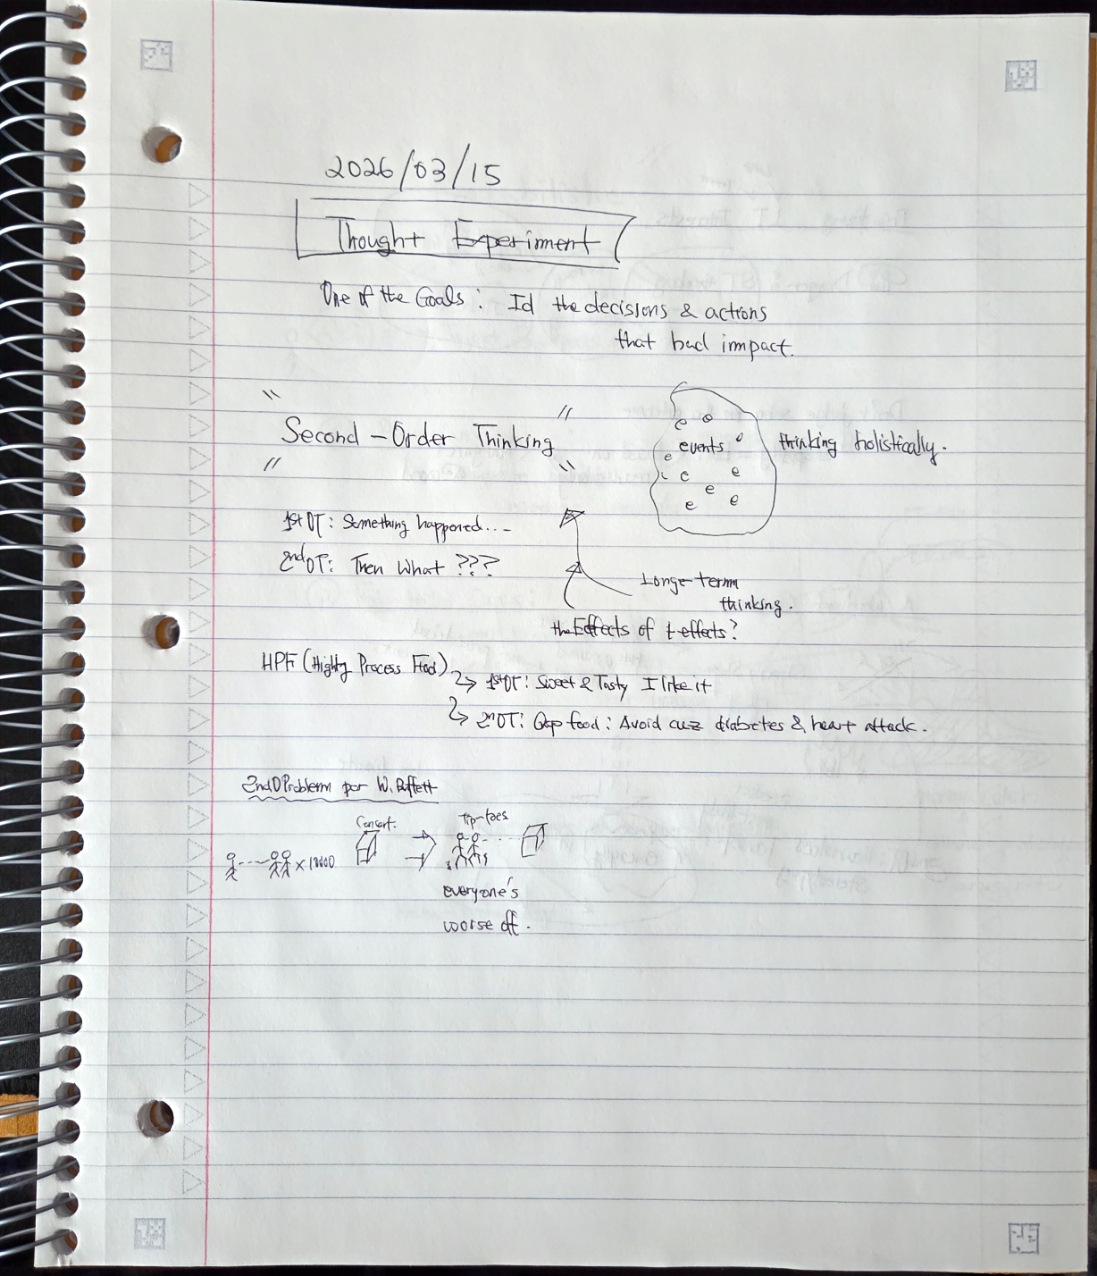 2026/03/15
Thought Experiment
One of the Goals: Id the decisions & actions
that had impact.
"Second-Order Thinking"
e e
events e
e
e c e
e
e e
thinking holistically.
1st OT: Something happened...
2nd OT: Then What ???
Long-term
thinking.
the Effects of t effects?
HPF (Highly Process Food)
1st OT: Sweet & Tasty I like it
2nd OT: Crap food: Avoid cuz diabetes & heart attack.
2nd O Problem por W. Buffett
Concert.
Tip-toes
x 10000
everyone's
worse off.